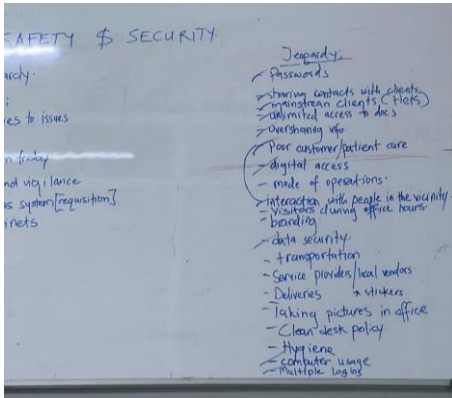 SAFETY $ SECURITY.
ardy.
;
es to issues
n friday
nd vigilance
us system [requisition]
inets
Jeopardy;
Passwords
sharing contacts with clients
mainstream clients
unlimited access to docs
oversharing info
Poor customer/patient care
- digital access
- mode of operations.
interaction with people in the vicinity.
- visitors during office hours.
- branding
data security.
- transportation
- Service providers/local vendors.
- Deliveries * stickers
- Taking pictures in office
- Clean desk policy
- Hygiene
- computer usage
- Multiple logins